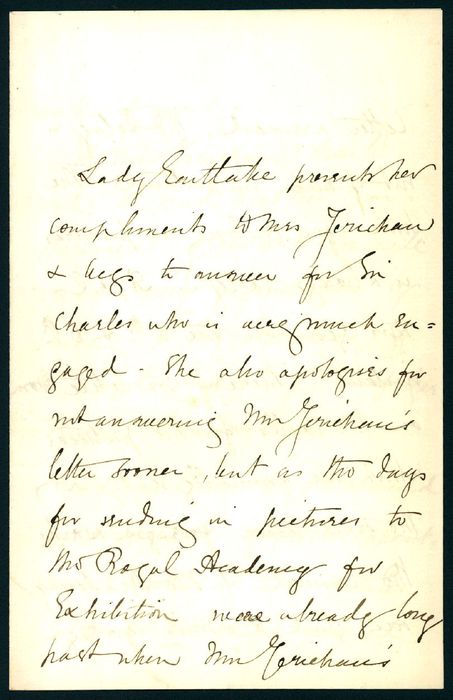 Lady Eastlake presents her
compliments to Mrs Jerichau
& begs to answer for Sir
Charles who is very much en=
gaged - She also apologises for
not answering Mrs Jerichau's
letter sooner, but as the days
for sending in pictures to
the Royal Academy for
Exhibition were already long
past when Mrs Jerichau's